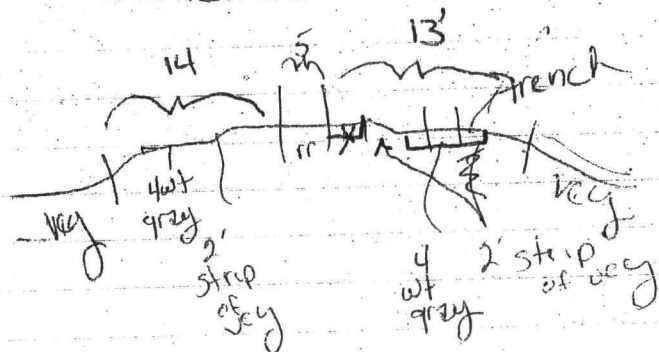 14
5
13'
trench
rr
veg
4 wt
gray
2'
strip
of
veg
4
wt
gray
2' strip
of veg
veg